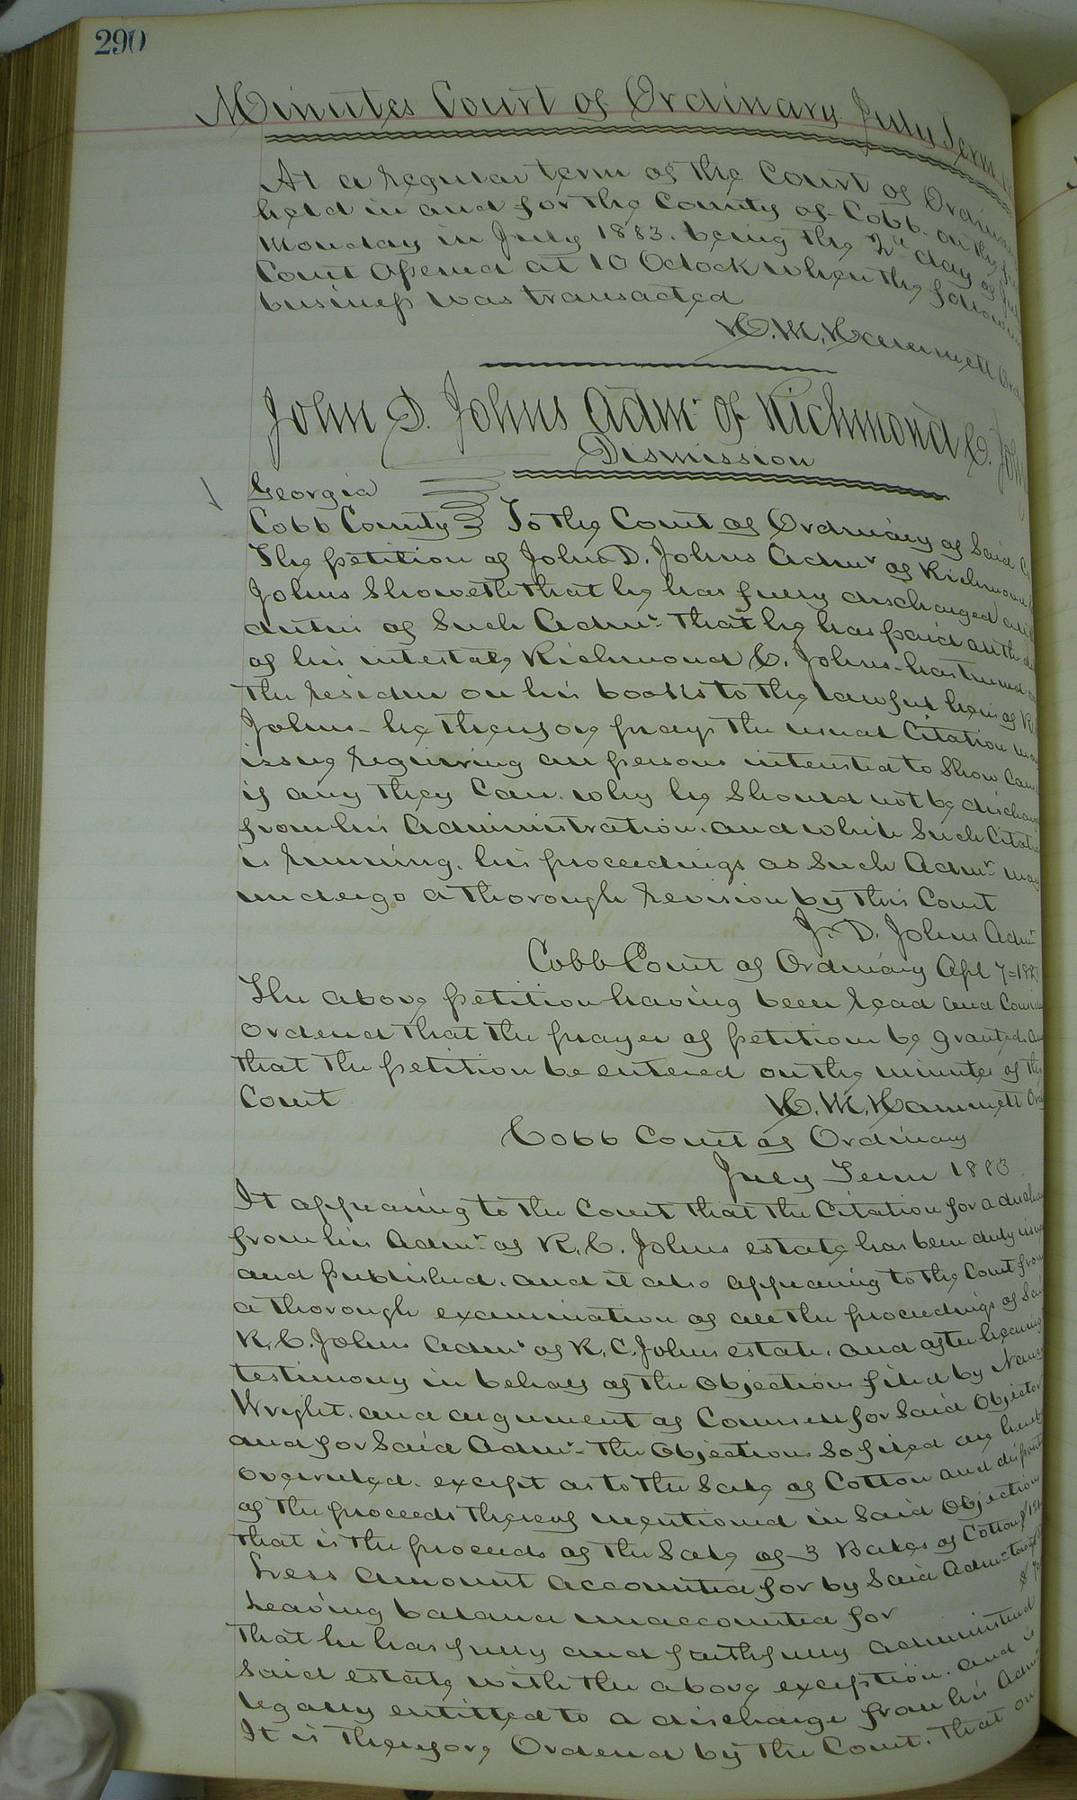 290
Minutes Court of Ordinary July Term
At a regular term of the Court of Ordinary
held in and for the County of Cobb on the
Monday in July 1883. being the 2d day of
Court Opened at 10 Oclock when the following
business was transacted
H. M. Hammett Ord
John D. Johns Admr of Richmond C. John
Dismission
Georgia
Cobb County To the Court of Ordinary of Said
The petition of John D. Johns Admr of Richmond
Johns Showeth that he has fully discharged all
duties of Such Admr. that he has paid all the
of his intestate Richmond C. Johns has turned
the residue on his books to the lawful heirs of R
Johns - he therefore prays the usual Citation may
issue requiring all persons interested to Show Cause
if any they Can. why he Should not be discharged
from his Administration. and while Such Citation
is running. his proceedings as Such Admr. may
undergo a thorough revision by this Court
J. D. Johns Admr
Cobb Court of Ordinary Apl 7-188
The above petition having been read and Consid
Ordered that the prayer of petition be granted and
that the petition be entered on the minutes of the
Court H. M. Hammett Ord
Cobb Court of Ordinary
July Term 1883
It appearing to the Court that the Citation for a discharge
from his Admr. of R. C. Johns estate has been duly issued
and published. and it also appearing to the Court from
a thorough examination of all the proceedings of Said
R. C. Johns Admr of R. C. Johns estate. and after hearing
testimony in behalf of the Objections filed by Nancy
Wright. and argument of Counsel for Said Objector
and for Said Admr. the Objections So filed are hereby
overruled. except as to the Sale of Cotton and
of the proceeds thereof mentioned in Said Objection
that is the proceeds of the Sale of 3 Bales of Cotton
Less amount accounted for by Said Admr
Leaving balance unaccounted for
that he has fully and faithfully administered
Said estate with the above exception. and is
legally entitled to a discharge from his Admr.
It is therefore Ordered by the Court. that